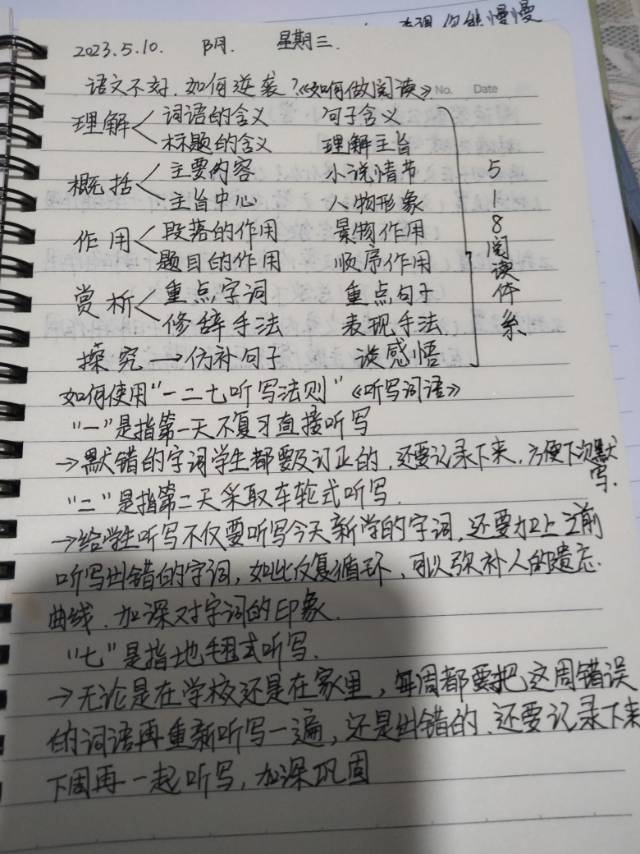 2023.5.10. 阴. 星期三.
No. Date
语文不好.如何逆袭?《如何做阅读》
理解 词语的含义 句子含义
标题的含义 理解主旨
概括 主要内容 小说情节
主旨中心 人物形象
作用 段落的作用 景物作用
题目的作用 顺序作用
赏析 重点字词 重点句子
修辞手法 表现手法
探究→仿补句子 谈感悟
518阅读体系
如何使用"一二七听写法则"《听写词语》
"一"是指第一天不复习直接听写
→默错的字词学生都要及订正的,还要记录下来.方便下次默写.
"二"是指第二天采取车轮式听写.
→给学生听写不仅要听写今天新学的字词,还要加上之前
听写出错的字词,如此反复循环,可以弥补人的遗忘
曲线.加深对字词的印象.
"七"是指地毯式听写.
→无论是在学校还是在家里,每周都要把这周错误
的词语再重新听写一遍,还是出错的.还要记录下来
下周再一起听写,加深巩固